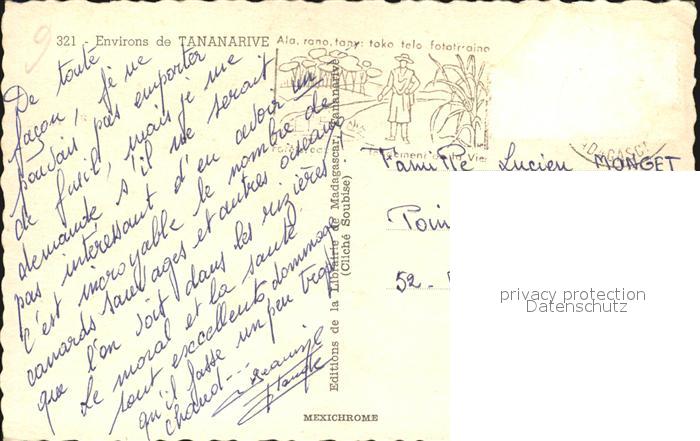 9
321 - Environs de TANANARIVE
Ala, rano, tany: toko telo fototr'aina
De toute
façon, je ne
pouvais pas emporter
de fusil, mais je me
demande s'il ne serait
pas intéressant d'en avoir un
c'est incroyable le nombre de
canards sauvages et autres oiseaux
que l'on voit dans les rizières
Le moral et la santé
sont excellents, dommage
qu'il fasse un peu trop
chaud...
Editions de la Librairie de Madagascar, Tananarive
(Cliché Soubise)
MEXICHROME
Famille Lucien MONGET
52 -
privacy protection
Datenschutz